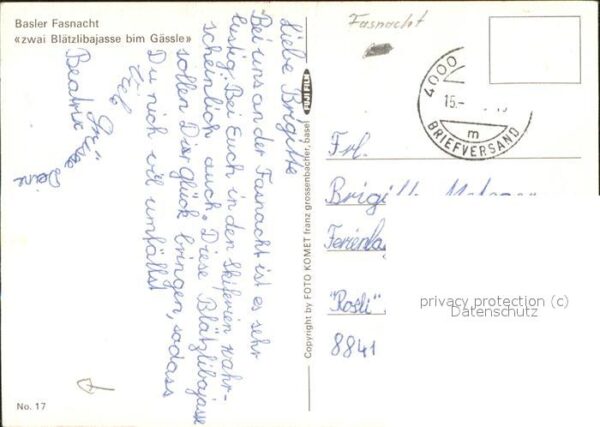 Basler Fasnacht
«zwai Blätzlibajasse bim Gässle»
Liebe Brigitte
Bei uns an der Fasnacht ist es sehr
lustig. Bei Euch in den Skiferien wahr-
scheinlich auch. Diese Blätzlibajasse
sollen Dir glück bringen, sodass
Du nich vil umfällst
Deine
Beatrix
No. 17
Copyright by FOTO KOMET franz grossenbacher, basel FUJI FILM
Fasnacht
4000
15.-
BRIEFVERSAND
m
Frl.
Brigitte
Ferienla
"Rösli"
8841
privacy protection (c)
Datenschutz